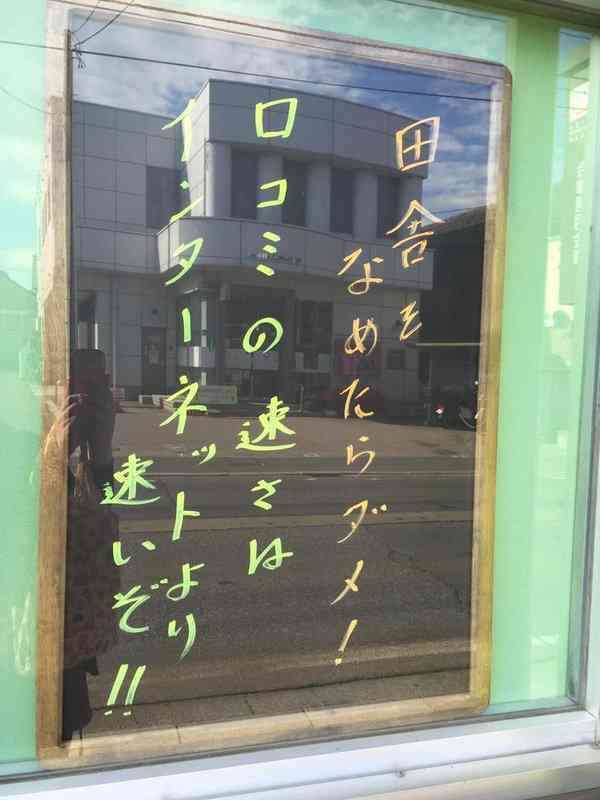 田舎を
なめたらダメ!
口コミの速さは
インターネットより
速いぞ!!